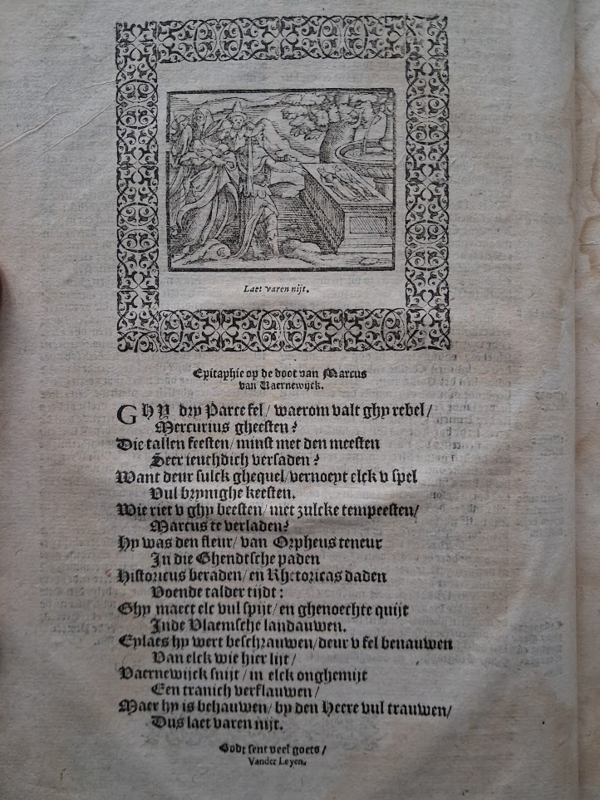 Laet varen nijt.
Epitaphie op de doot van Marcus
van Vaernewijck.
GHY dry Parce fel / waerom valt ghy rebel /
Mercurius gheesten?
Die tallen feesten / minst met den meesten
Seer ieuchdich versaden?
Want deur sulck ghequel / vernoept elck v spel
Vul brynighe keesten.
Wie riet v ghy beesten / met zulcke tempeesten /
Marcus te verladen?
Hy was den fleur / van Orpheus teneur
In die Ghendtsche paden
Historicus beraden / en Rhetoricas daden
Voende talder tijdt:
Ghy maect elc vul spijt / en ghenoechte quijt
Inde Vlaemsche landauwen.
Eylaes hy wert beschrauwen / deur v fel benauwen
Van elck wie hier lijt /
Vaernewijck snijt / in elck onghemijt
Een tranich verflauwen /
Maer hy is behauwen / by den Heere vul trauwen /
Dus laet varen nijt.
Godt sent veel goets /
Vander Leyen.